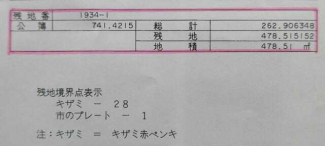 残地番 1934-1
公簿 741.4215 総計 262.906348
残地 478.515152
地積 478.51 ㎡
残地境界点表示
キザミ － 28
市のプレート － 1
注：キザミ ＝ キザミ赤ペンキ